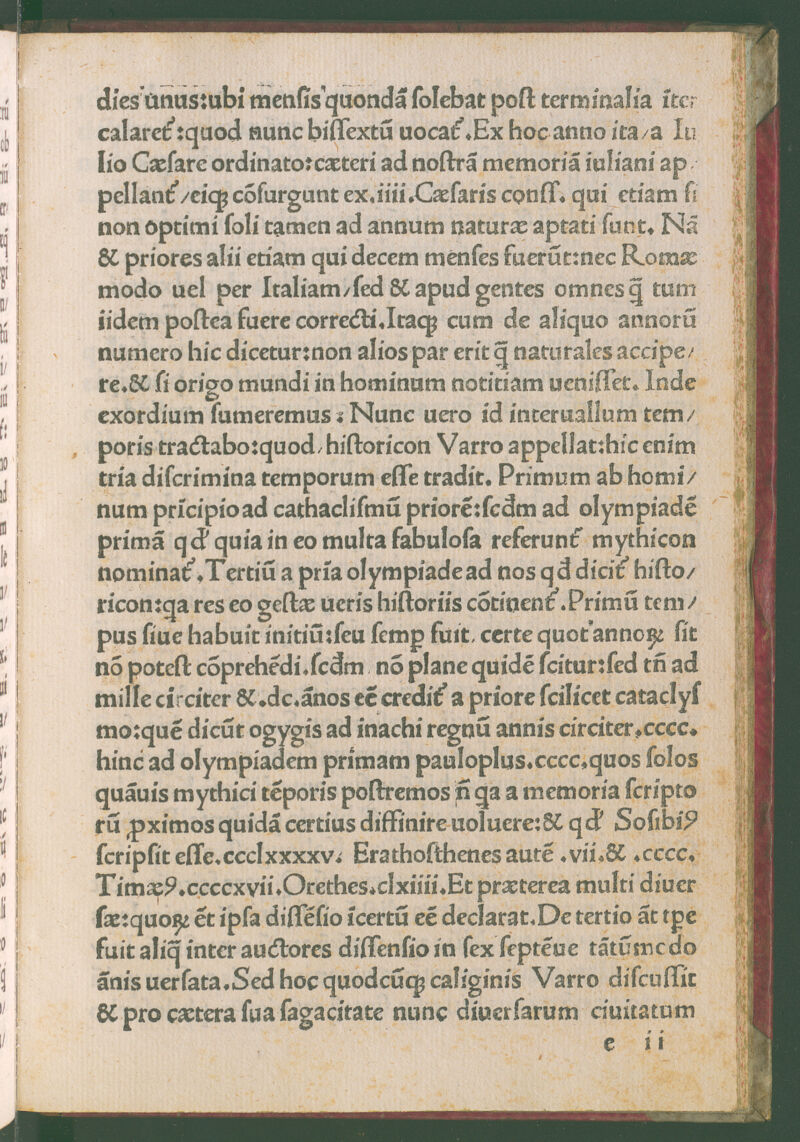 dies unus:ubi mensis quondã solebat post terminalia ite
calaret̃:quod nunc bissextũ uocat̃.Ex hoc anno ita/a Iu
lio Cæsare ordinato:cæteri ad nostrã memoriã iuliani ap
pellant̃/eiqꝫ cõsurgunt ex.iiii.Cæsaris conss. qui etiam si
non optimi soli tamen ad annum naturæ aptati sunt. Nã
& priores alii etiam qui decem menses fuerũt:nec Romæ
modo uel per Italiam/sed & apud gentes omnes q̃ tum
iidem postea fuere correcti.Itaqꝫ cum de aliquo annorũ
numero hic dicetur:non alios par erit q̃ naturales accipe/
re.& si origo mundi in hominum notitiam uenisset. Inde
exordium sumeremus: Nunc uero id interuallum tem/
poris tractabo:quod/historicon Varro appellat:hic enim
tria discrimina temporum esse tradit. Primum ab homi/
num prícipio ad cathaclismũ priorẽ:scđm ad olympiadẽ
primã qđ quia in eo multa fabulosa referunt̃ mythicon
nominat̃.Tertiũ a pría olympiade ad nos qđ dicit̃ histo/
ricon:qa res eo gestæ ueris historiis cõtinent̃.Primũ tem/
pus siue habuit initiũ:seu semp fuit. certe quot annoꝝ sit
nõ potest cõprehẽdi.scđm nõ plane quidẽ scitur:sed tñ ad
mille circiter &.dc.ãnos eẽ credit̃ a priore scilicet cataclys
mo:quẽ dicũt ogygis ad inachi regnũ annis circiter.cccc.
hinc ad olympiadem primam pauloplus.cccc.quos solos
quãuis mythici tẽporis postremos ñ qa a memoria scripto
rũ ꝓximos quidã certius diffinire uoluere:& qđ Sosibiꝰ
scripsit esse.ccclxxxxv. Erathosthenes autẽ .vii.& .cccc.
Timæꝰ.ccccxvii.Orethes.clxiiii.Et præterea multi diuer
sæ:quoꝝ ẽt ipsa dissẽsio ĩcertũ eẽ declarat.De tertio ãt tpe
fuit aliq̃ inter auctores dissensio in sex septẽue tãtũmodo
ãnis uersata.Sed hoc quodcũqꝫ caliginis Varro discussit
& pro cætera sua sagacitate nunc diuersarum ciuitatum
e ii